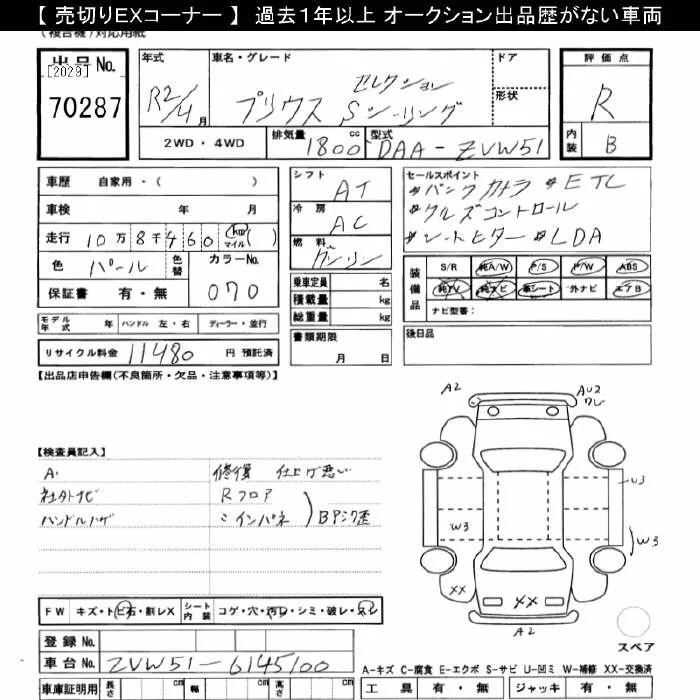 【 売切りEXコーナー 】 過去1年以上 オークション出品歴がない車両
(複合機)対応用紙
出品No.
[2029]
70287
年式
R2/4月
車名・グレード
セレクション
プリウス Sツーリング
ドア
形状
評価点
R
内装
B
2WD・4WD
排気量
1800cc
型式
DAA-ZVW51
車歴 自家用・( )
車検 年 月
走行 10万8千460 km マイル ( )
色 パール
色替
カラーNo.
070
保証書 有・無
シフト
AT
冷房
AC
燃料
ガソリン
乗車定員 名
積載量 kg
総重量 kg
セールスポイント
*バックカメラ *ETC
*クルーズコントロール
*シートヒーター *LDA
装備品
S/R 純A/W P/S P/W ABS
純TV 純ナビ 革シート 外ナビ エアB
ナビ型番:
モデル年式 年 ハンドル 左・右 ディーラー・並行
リサイクル料金 11480 円 預託済
書類期限
月 日
後日品
【出品店申告欄(不良箇所・欠品・注意事項等)】
【検査員記入】
A.
社外ナビ
ハンドルハゲ
修復 仕上げ悪い
Rフロア
ミインパネ
BPシク歪
A2
AU2
ワレ
U3
W3
W3
XX
XX
A2
スペア
FW キズ・トビ石・割レX
シート内装 コゲ・穴・汚レ・シミ・破レ・スレ
登録No.
車台No. ZVW51-6145100
車庫証明用 長さ cm 幅 cm 高さ cm
A-キズ C-腐食 E-エクボ S-サビ U-凹ミ W-補修 XX-交換済
工具 有・無 ジャッキ 有・無